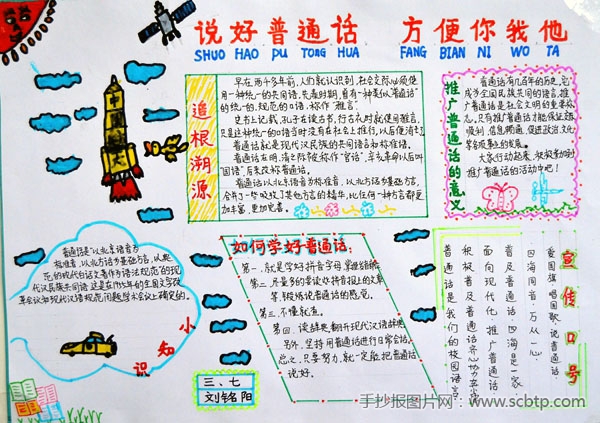 说好普通话 方便你我他
SHUO HAO PU TONG HUA FANG BIAN NI WO TA
追根溯源
早在两千多年前,人们就认识到,社会交际必须使
用一种统一的共同语,共春时期,自有一种类似"普通话"
的统一的,规范的口语,称作"雅言"。
史书上记载,孔子在读书,行古礼时就使用雅言。
只是这种统一的口语当时没有在社会上推行,以后便清
普通话就是现代汉民族的共同语言和标准语。
普通话在明、清之际被称作"官话",辛亥革命以后叫
"国语",后来改称普通话。
普通话以北京语音为标准音,以北方话为基础方言,
合并了一些吸收了其他方言的精华,比任何一种方言都更
加丰富,更加完善。
推广普通话的意义
普通话有几百年的历史,它
成为全国民族共同的语言,推
广普通话是社会文明的重要标
志,只有推广普通话才能保证交通
顺利,信息畅通,促进政治、文化
等各项事业的发展。
大家行动起来,积极参加到
推广普通话的活动中吧!
普通话是"以北京语音为
标准音,以北方话为基础方言,以典
范的现代白话文著作为语法规范"的现
代汉民族共同语,这是在1955年的全国文字改
革会议和现代汉语规范问题学术会议上确定的。
小知识
如何学好普通话:
第一,就是学好拼音字母,掌握发音部
第二,尽量多的尝试放拼音报上的文章
等,锻炼说普通话的感觉。
第三,不懂就查。
第四,读辞典,翻开现代汉语辞典
另外,坚持用普通话进行日常会话。
总之,只要努力,就一定能把普通话
说好。
三、七
刘铭阳
宣传口号
爱国旗,唱国歌,说普通话。
四海同音,万众一心。
普及普通话,四海是一家。
面向现代化,推广普通话
积极普及普通话,齐心协力
普通话是我们的校园语言。
手抄报图片网:www.scbtp.com